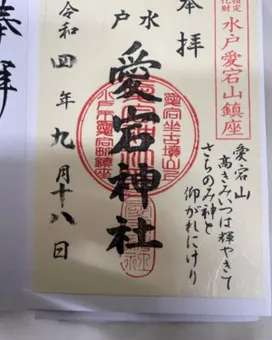 奉拝
水戸
愛宕神社
令和四年九月十八日
水戸愛宕山鎮座
愛宕山
高きみいつは輝やきて
さちのみ神と
仰がれにけり
奉拝